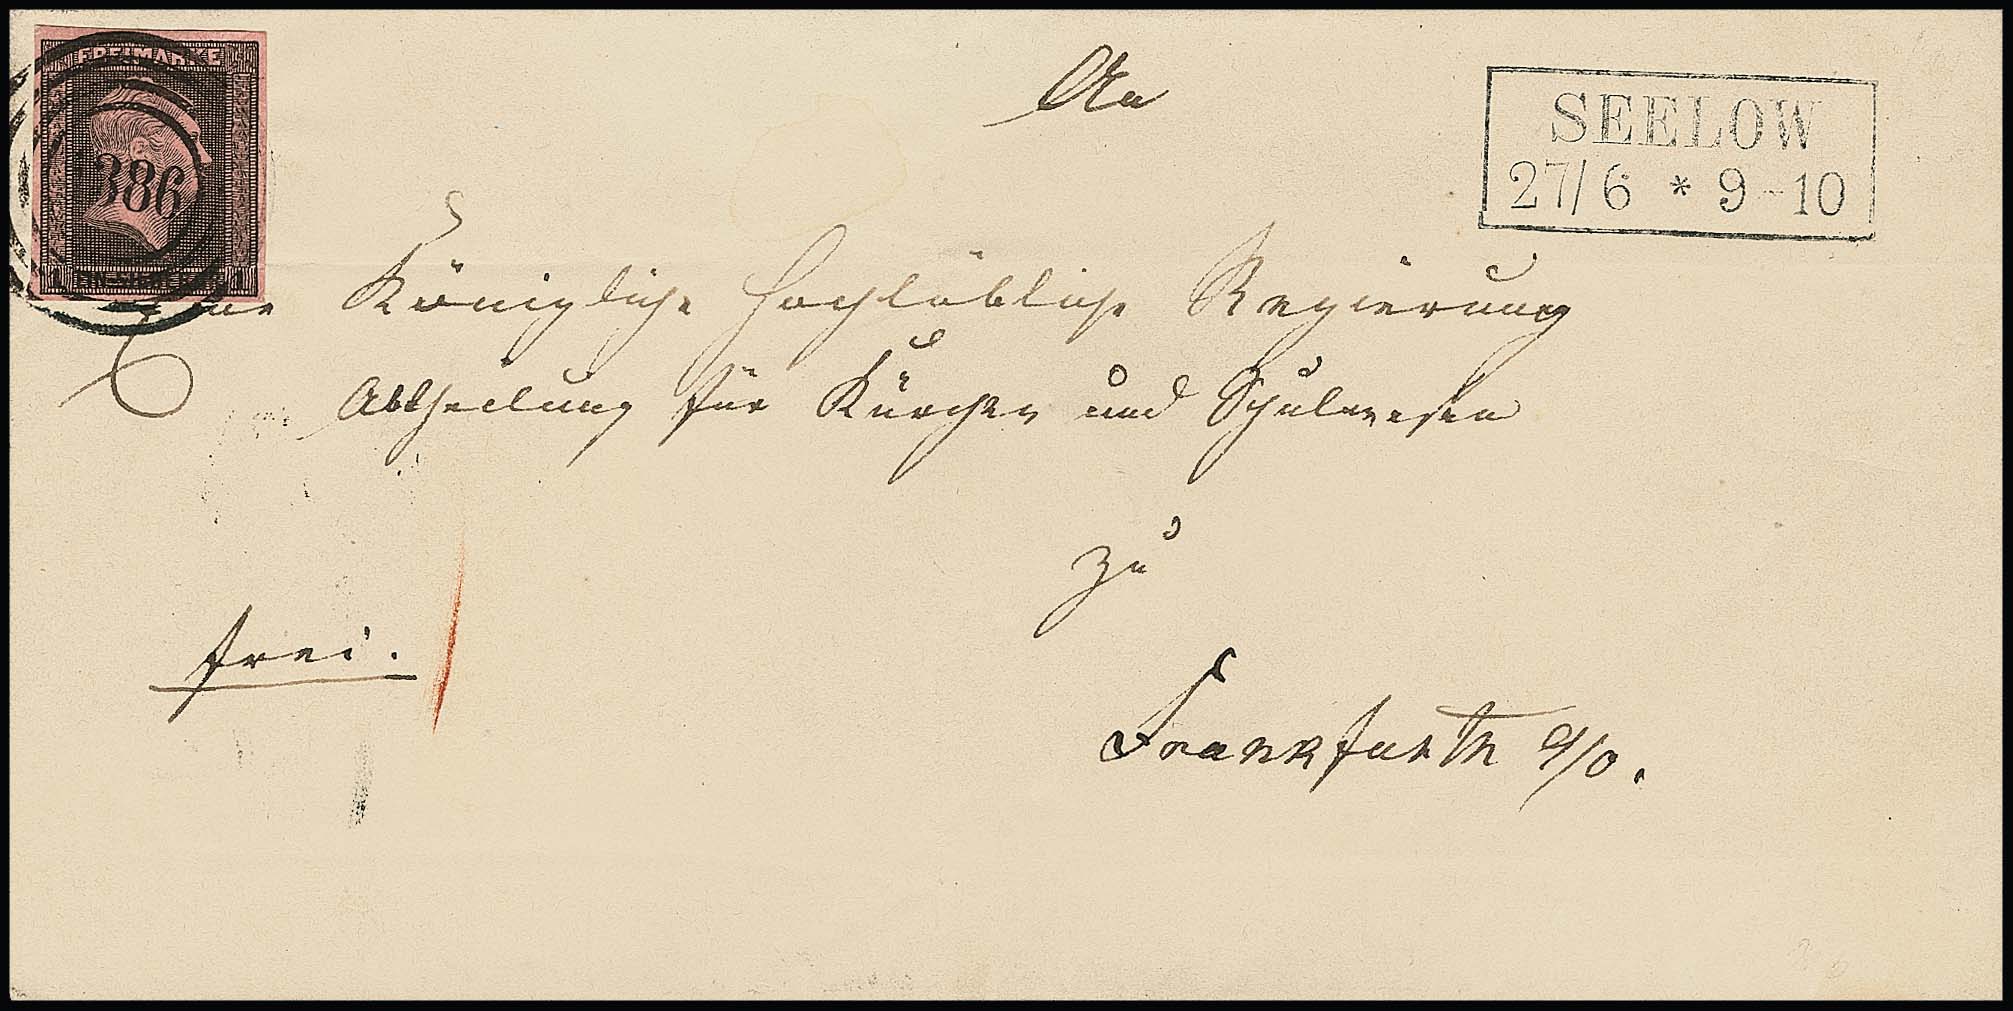 FREIMARKE
386
1 EIN SILBERGR. 1
SEELOW
27/6 * 9-10
An
Eine Königliche Hochlöbliche Regierung
Abtheilung für Kirchen und Schulwesen
zu
frei.
Frankfurth a/O.